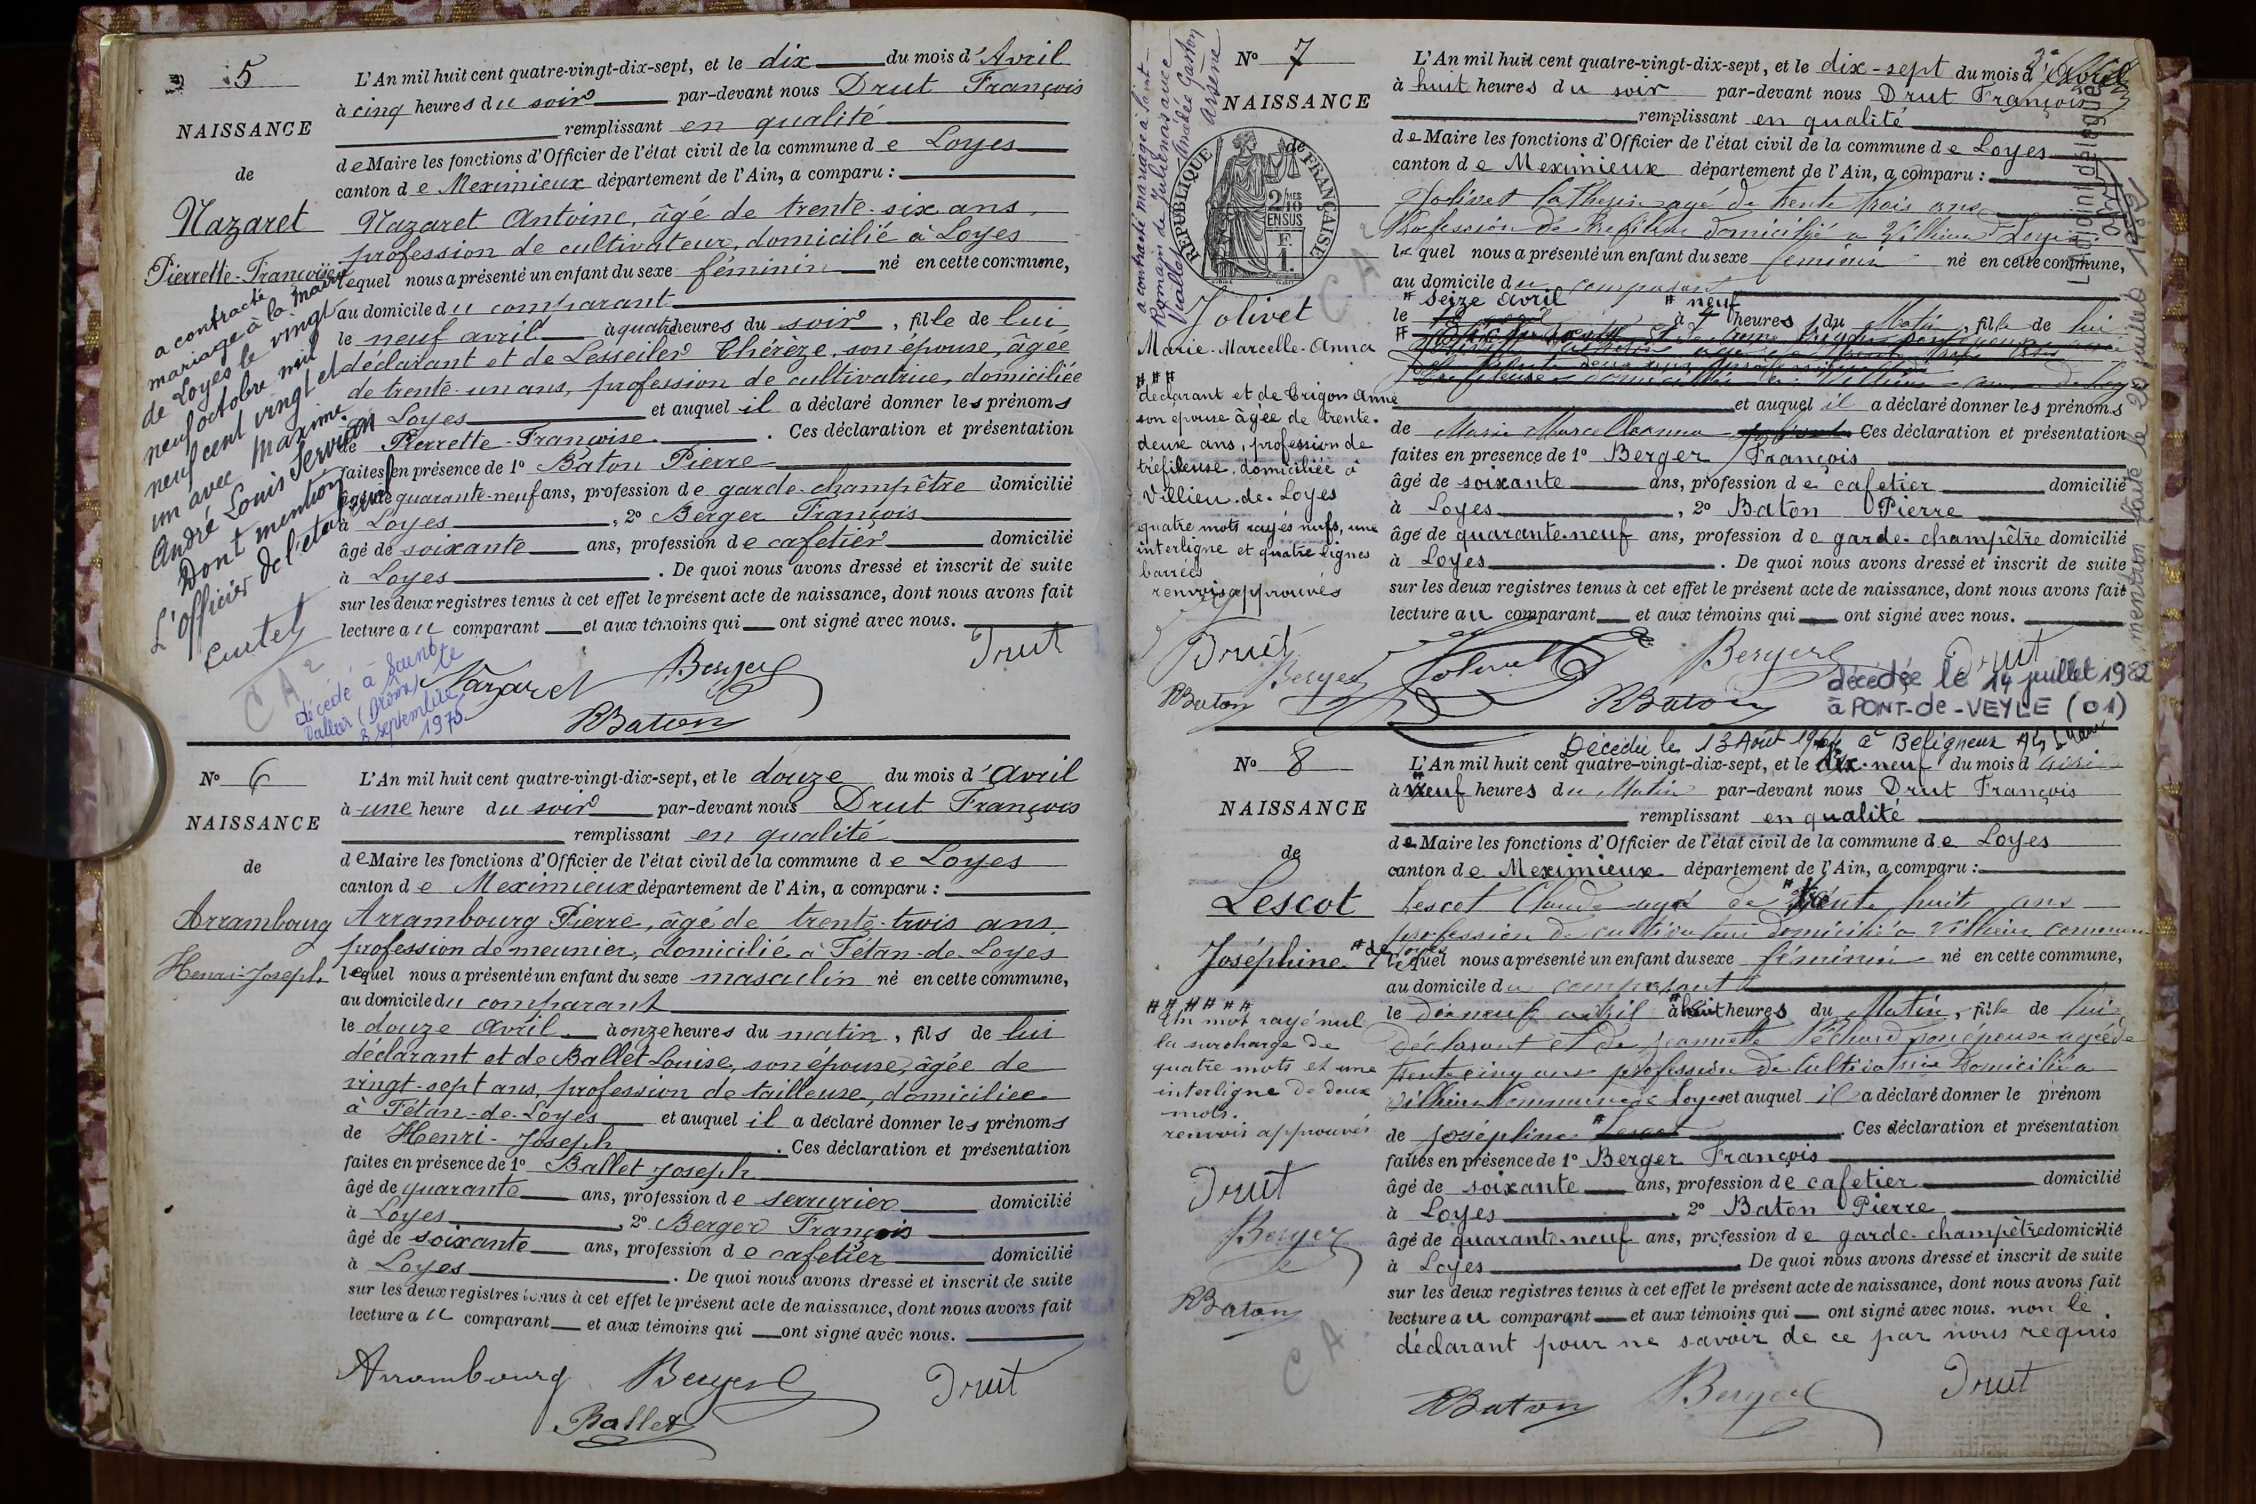 5
NAISSANCE
de
Nazaret
Pierrette-Françoise
a contracté
mariage à la mairie
de Loyes le vingt
neuf octobre mil
neuf cent vingt et
un avec Maxime
André Louis Servian
Dont mention
L'Officier de l'état civil
L'An mil huit cent quatre-vingt-dix-sept, et le dix du mois d'Avril
à cinq heures du soir par-devant nous Drut François
remplissant en qualité
de Maire les fonctions d'Officier de l'état civil de la commune de Loyes
canton de Meximieux département de l'Ain, a comparu :
Nazaret Antoine, âgé de trente-six ans,
profession de cultivateur, domicilié à Loyes
lequel nous a présenté un enfant du sexe féminin né en cette commune,
au domicile du comparant
le neuf avril à quatre heures du soir, fille de lui
déclarant et de Lesseiler Thérèze, son épouse, âgée
de trente-un ans, profession de cultivatrice, domiciliée
à Loyes et auquel il a déclaré donner les prénoms
de Pierrette-Françoise. Ces déclaration et présentation
faites en présence de 1° Bâton Pierre
âgé de quarante-neuf ans, profession de garde-champêtre domicilié
à Loyes, 2° Berger François
âgé de soixante ans, profession de cafetier domicilié
à Loyes. De quoi nous avons dressé et inscrit de suite
sur les deux registres tenus à cet effet le présent acte de naissance, dont nous avons fait
lecture au comparant et aux témoins qui ont signé avec nous.
CA2
décédé à Saint
Vallier (Drôme) le
8 septembre
1973
Nazaret Berger Drut
Baton
N° 6
NAISSANCE
de
Arrambourg
Henri-Joseph
L'An mil huit cent quatre-vingt-dix-sept, et le douze du mois d'avril
à une heure du soir par-devant nous Drut François
remplissant en qualité
de Maire les fonctions d'Officier de l'état civil de la commune de Loyes
canton de Meximieux département de l'Ain, a comparu :
Arrambourg Pierre, âgé de trente-trois ans,
profession de meunier, domicilié à Fétan-de-Loyes
lequel nous a présenté un enfant du sexe masculin né en cette commune,
au domicile du comparant
le douze avril à onze heures du matin, fils de lui
déclarant et de Ballet Louise, son épouse, âgée de
vingt-sept ans, profession de tailleuse, domiciliée
à Fétan-de-Loyes et auquel il a déclaré donner les prénoms
de Henri-Joseph. Ces déclaration et présentation
faites en présence de 1° Ballet Joseph
âgé de quarante ans, profession de serrurier domicilié
à Loyes, 2° Berger François
âgé de soixante ans, profession de cafetier domicilié
à Loyes. De quoi nous avons dressé et inscrit de suite
sur les deux registres tenus à cet effet le présent acte de naissance, dont nous avons fait
lecture au comparant et aux témoins qui ont signé avec nous.
Arrambourg Berger Drut
Ballet
N° 7
NAISSANCE
a contracté mariage à Saint
Romain de Juliénas avec
Viallet Amédée Gaston
Arsène
RÉPUBLIQUE FRANÇAISE
2/10 MES
EN SUS
F.
1.
CA2
Jolivet
Marie-Marcelle-Anna
# # #
déclarant et de Trigon Anne
son épouse âgée de trente-
deux ans, profession de
tréfileuse, domiciliée à
Villieu-de-Loyes
quatre mots rayés nuls, une
interligne et quatre lignes
barrées
renvois approuvés
Drut
Berger
Baton
L'An mil huit cent quatre-vingt-dix-sept, et le dix-sept du mois d'Avril
à huit heures du soir par-devant nous Drut François
remplissant en qualité
de Maire les fonctions d'Officier de l'état civil de la commune de Loyes
canton de Meximieux département de l'Ain, a comparu :
Jolivet âgé de trente trois ans
Profession de Tréfileur domicilié a Villieu Loyes
lequel nous a présenté un enfant du sexe féminin né en cette commune,
au domicile du comparant
# seize avril # neuf
le à heures du Matin, fille de lui
et auquel il a déclaré donner les prénoms
de Marie Marcelle anna Ces déclaration et présentation
faites en présence de 1° Berger François
âgé de soixante ans, profession de cafetier domicilié
à Loyes, 2° Baton Pierre
âgé de quarante-neuf ans, profession de garde-champêtre domicilié
à Loyes. De quoi nous avons dressé et inscrit de suite
sur les deux registres tenus à cet effet le présent acte de naissance, dont nous avons fait
lecture au comparant et aux témoins qui ont signé avec nous.
Jolivet Berger Drut
Baton
décédée le 14 juillet 1982
à PONT-de-VEYLE (01)
mention faite le 20 juillet 1982
L'adjoint délégué
N° 8
NAISSANCE
de
Lescot
Joséphine
# # # # # #
Un mot rayé nul
la surcharge de
quatre mots et une
interligne de deux
mots.
renvois approuvés
Drut
Berger
Baton
CA
Décédée le 13 Août à Béligneux
L'An mil huit cent quatre-vingt-dix-sept, et le dix-neuf du mois d'avril
à neuf heures du Matin par-devant nous Drut François
remplissant en qualité
de Maire les fonctions d'Officier de l'état civil de la commune de Loyes
canton de Meximieux département de l'Ain, a comparu :
Lescot Claude agé de trente huit ans
profession de cultivateur domicilié a Villieu commune
# de Loyes
lequel nous a présenté un enfant du sexe féminin né en cette commune,
au domicile du comparant
le dix neuf avril à huit heures du Matin, fille de lui
déclarant et de Jeannette Péchard son épouse agée de
trente cinq ans profession de Cultivatrice Domiciliée a
Villieu Commune de Loyes et auquel il a déclaré donner le prénom
de Joséphine Lescot. Ces déclaration et présentation
faites en présence de 1° Berger François
âgé de soixante ans, profession de cafetier domicilié
à Loyes, 2° Baton Pierre
âgé de quarante-neuf ans, profession de garde-champêtre domicilié
à Loyes De quoi nous avons dressé et inscrit de suite
sur les deux registres tenus à cet effet le présent acte de naissance, dont nous avons fait
lecture au comparant et aux témoins qui ont signé avec nous. non le
déclarant pour ne savoir de ce par nous requis
Baton Berger Drut